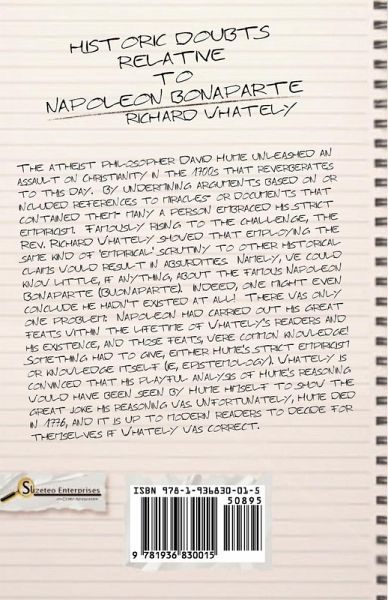 HISTORIC DOUBTS
RELATIVE
TO
NAPOLEON BONAPARTE
RICHARD WHATELY
THE ATHEIST PHILOSOPHER DAVID HUME UNLEASHED AN
ASSAULT ON CHRISTIANITY IN THE 1700S THAT REVERBERATES
TO THIS DAY. BY UNDERMINING ARGUMENTS BASED ON OR
INCLUDED REFERENCES TO 'MIRACLES' OR DOCUMENTS THAT
CONTAINED THEM MANY A PERSON EMBRACED HIS STRICT
EMPIRICISM. FAMOUSLY RISING TO THE CHALLENGE, THE
REV. RICHARD WHATELY SHOWED THAT EMPLOYING THE
SAME KIND OF 'EMPIRICAL' SCRUTINY TO OTHER HISTORICAL
CLAIMS WOULD RESULT IN ABSURDITIES. NAMELY, WE COULD
KNOW LITTLE, IF ANYTHING, ABOUT THE FAMOUS NAPOLEON
BONAPARTE (BUONAPARTE). INDEED, ONE MIGHT EVEN
CONCLUDE HE HADN'T EXISTED AT ALL! THERE WAS ONLY
ONE PROBLEM: NAPOLEON HAD CARRIED OUT HIS GREAT
FEATS WITHIN THE LIFETIME OF WHATELY'S READERS AND
HIS EXISTENCE, AND THOSE FEATS, WERE COMMON KNOWLEDGE!
SOMETHING HAD TO GIVE, EITHER HUME'S STRICT EMPIRICISM
OR KNOWLEDGE ITSELF (IE, EPISTEMOLOGY). WHATELY IS
CONVINCED THAT HIS PLAYFUL ANALYSIS OF HUME'S REASONING
WOULD HAVE BEEN SEEN BY HUME HIMSELF TO SHOW THE
GREAT JOKE HIS REASONING WAS. UNFORTUNATELY, HUME DIED
IN 1776, AND IT IS UP TO MODERN READERS TO DECIDE FOR
THEMSELVES IF WHATELY WAS CORRECT.
Suzeteo Enterprises
ISBN 978-1-936830-01-5
50895
9 781936 830015